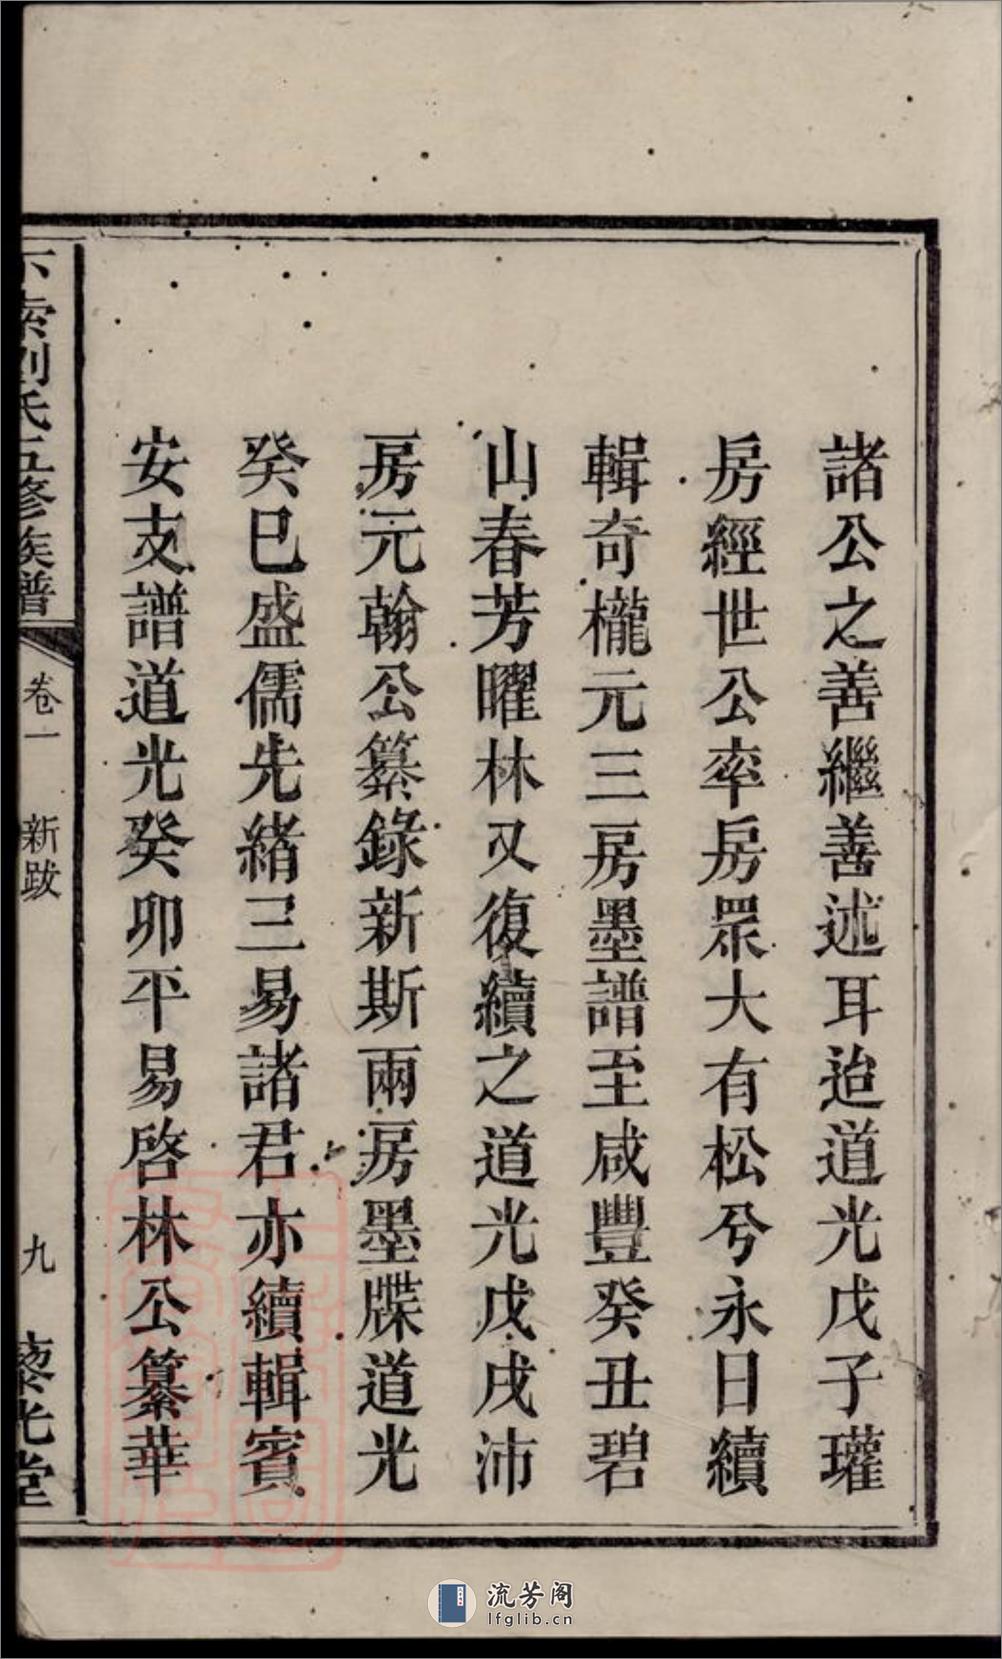 諸公之善繼善述耳迨道光戊子瓘
房經世公率房眾大有松兮永日續
輯奇櫳元三房墨譜至咸豐癸丑碧
山春芳曜林又復續之道光戊戌沛
房元翰公纂錄新斯兩房墨牒道光
癸巳盛儒先緒三易諸君亦續輯賓
安支譜道光癸卯平易啓林公纂華
下索劉氏五修族譜
卷一
新跋
九
藜光堂
流芳阁
lfglib.cn